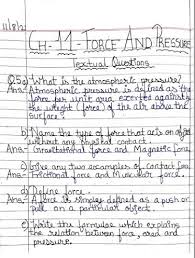 11/8/21
Ch-11-Force And Pressure
Textual Questions
Q5a) What is the atmospheric pressure?
Ans- Atmospheric pressure is defined as the
force per unit area exerted against
the weight (force) of the air above the
surface.
b) Name the type of force that acts on object
without any physical contact.
Ans- Gravitational force and Magnetic force
c) Give any two examples of contact force
Ans- Frictional force and Muscular force.
d) Define force.
Ans- A force is simply defined as a push or
pull on a particular object.
e) Write the formulae which explains
the relation between force, area and
pressure.